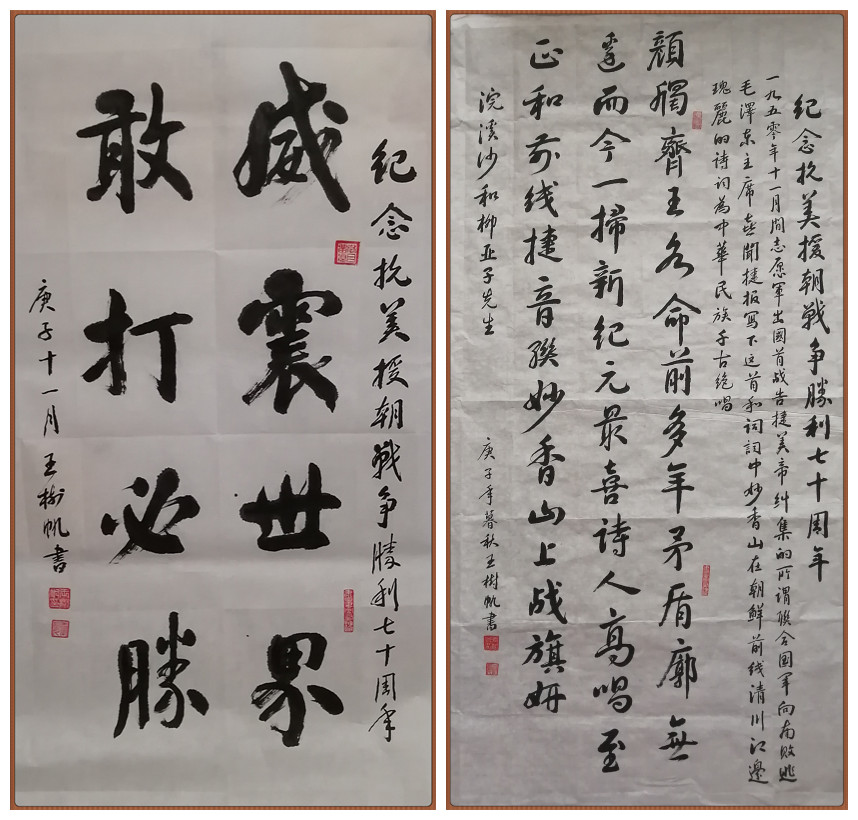 纪念抗美援朝戰争勝利七十周年
威震世界
敢打必勝
庚子十一月王树帆书
纪念抗美援朝戰争勝利七十周年
一九五零年十一月間志愿軍出國首战告捷美帝纠集的所谓联合国军向南败逃
毛澤东主席喜聞捷报写下这首和词詞中妙香山在朝鲜前线清川江邊
瑰麗的詩词為中華民族千古绝唱
顔斶齊王各命前多年矛盾廓無
遺而今一掃新纪元最喜诗人高唱至
正和前线捷音聯妙香山上战旗妍
浣溪沙和柳亚子先生
庚子年暮秋王树帆書